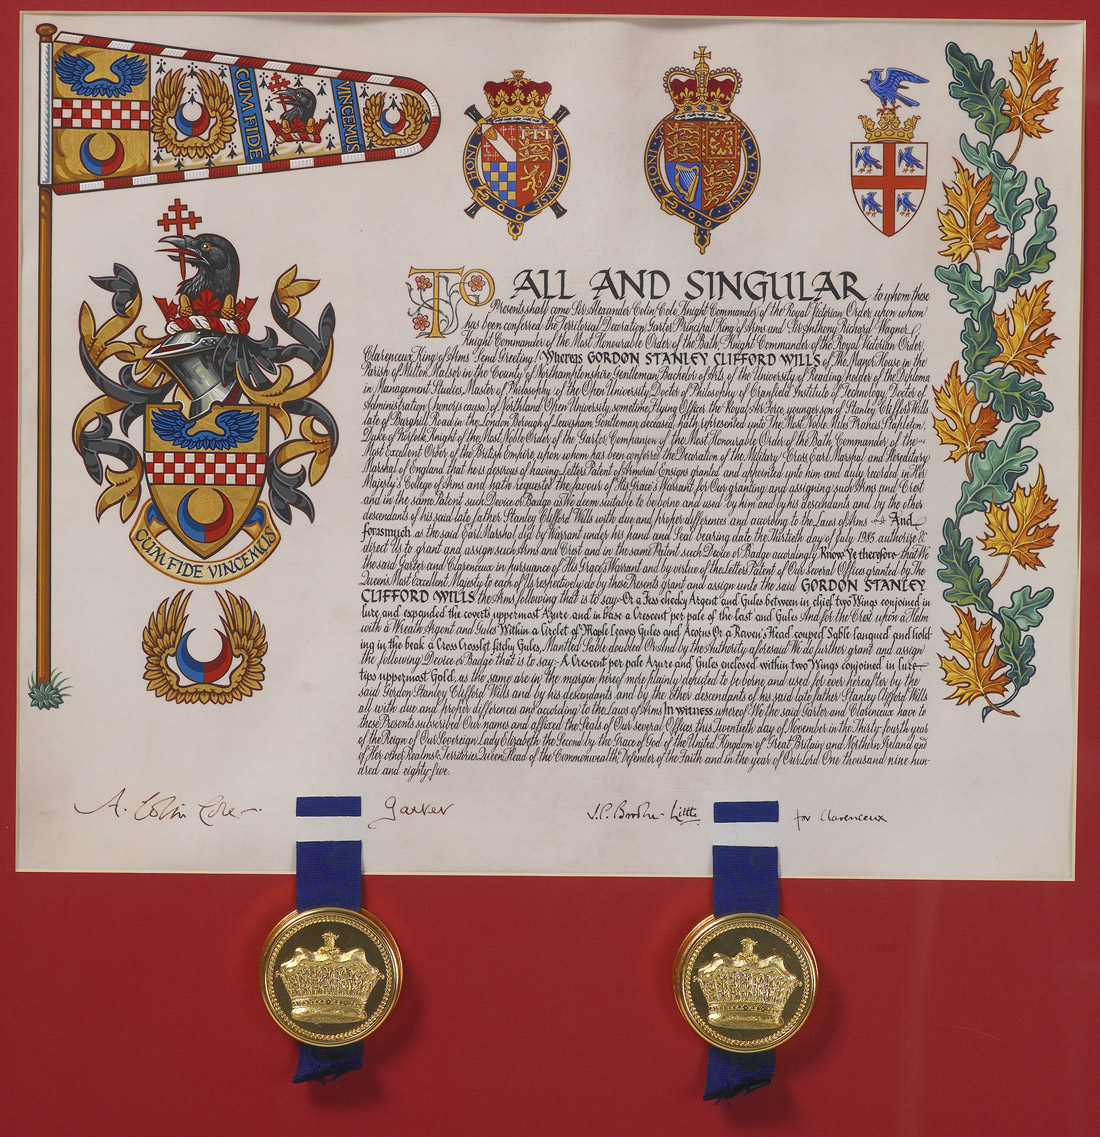 CUM FIDE
VINCEMUS
HONI
Y PENSE
HONI
QUI MAL Y PENSE
TO ALL AND SINGULAR to whom these
Presents shall come Sir Alexander Colin Cole Knight Commander of the Royal Victorian Order upon whom
has been conferred the Territorial Decoration Garter Principal King of Arms and Sir Anthony Richard Wagner
Knight Commander of the Most Honourable Order of the Bath, Knight Commander of the Royal Victorian Order,
Clarenceux King of Arms Send Greeting! Whereas GORDON STANLEY CLIFFORD WILLS of The Manor House in the
Parish of Milton Malsor in the County of Northamptonshire, Gentleman, Bachelor of Arts of the University of Reading, holder of the Diploma
in Management Studies, Master of Philosophy of the Open University, Doctor of Philosophy of Cranfield Institute of Technology, Doctor of
Administration (honoris causa) of Northland Open University, sometime Flying Officer the Royal Air Force, younger son of Stanley Clifford Wills
late of Burghill Road in the London Borough of Lewisham Gentleman deceased, hath represented unto The Most Noble Miles Francis Stapleton,
Duke of Norfolk, Knight of the Most Noble Order of the Garter, Companion of the Most Honourable Order of the Bath, Commander of the
Most Excellent Order of the British Empire, upon whom has been conferred the Decoration of the Military Cross, Earl Marshal and Hereditary
Marshal of England that he is desirous of having Letters Patent of Armorial Ensigns granted and appointed unto him and duly recorded in Her
Majesty's College of Arms and hath requested the favour of His Grace's Warrant for Our granting and assigning such Arms and Crest
and in the same Patent such Device or Badge as We deem suitable to be borne and used by him and by his descendants and by the other
descendants of his said late father Stanley Clifford Wills with due and proper differences and according to the Laws of Arms And
forasmuch as the said Earl Marshal did by Warrant under his hand and Seal bearing date the Thirtieth day of July 1985 authorize &
direct Us to grant and assign such Arms and Crest and in the same Patent such Device or Badge accordingly Know Ye therefore that We
the said Garter and Clarenceux in pursuance of His Grace's Warrant and by virtue of the Letters Patent of Our several Offices granted by The
Queen's Most Excellent Majesty to each of Us respectively do by these Presents grant and assign unto the said GORDON STANLEY
CLIFFORD WILLS the Arms following that is to say:- Or a Fess checky Argent and Gules between in chief two Wings conjoined in
lure and expanded the coverts uppermost Azure and in base a Crescent per pale of the last and Gules And for the Crest upon a Helm
with a Wreath Argent and Gules Within a Circlet of Maple Leaves Gules and Acorns Or a Raven's Head couped Sable langued and hold-
ing in the beak a Cross Crosslet fitchy Gules, Mantled Sable doubled Or And by the Authority aforesaid We do further grant and assign
the following Device or Badge that is to say:- A Crescent per pale Azure and Gules enclosed within two Wings conjoined in lure
tips uppermost Gold, as the same are in the margin hereof more plainly depicted to be borne and used for ever hereafter by the
said Gordon Stanley Clifford Wills and by his descendants and by the other descendants of his said late father Stanley Clifford Wills
all with due and proper differences and according to the Laws of Arms In witness whereof We the said Garter and Clarenceux have to
these Presents subscribed Our names and affixed the Seals of Our several Offices this Twentieth day of November in the Thirty-fourth year
of the Reign of Our Sovereign Lady Elizabeth the Second by the Grace of God of the United Kingdom of Great Britain and Northern Ireland and
of Her other Realms & Territories Queen, Head of the Commonwealth, Defender of the Faith and in the year of Our Lord One thousand nine hun-
dred and eighty-five.
CUM FIDE VINCEMUS
A. Colin Cole Garter
J.P. Brooke-Little for Clarenceux